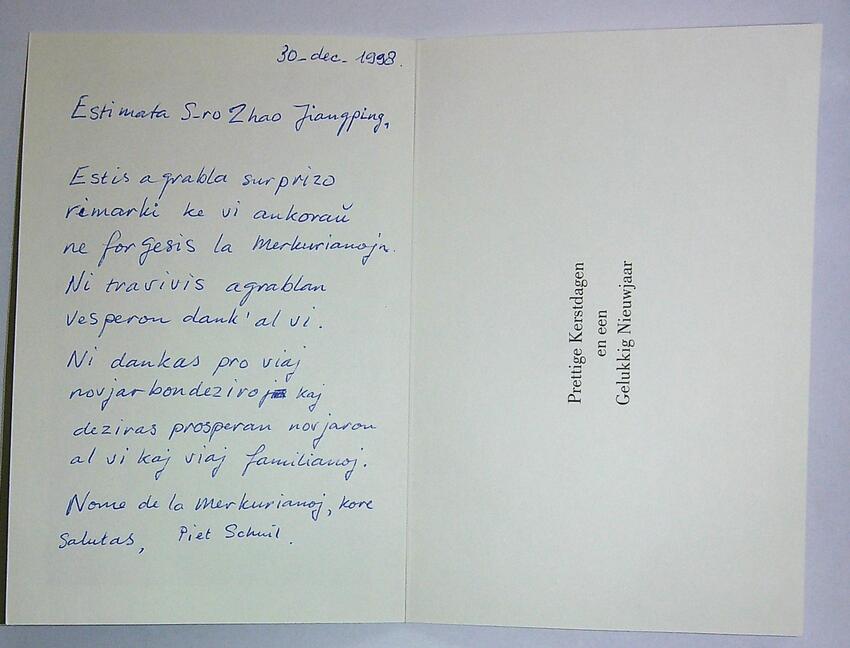 30-dec-1998.
Estimata S-ro Zhao Jiangping,
Estis agrabla surprizo
rimarki ke vi ankoraŭ
ne forgesis la Merkurianojn.
Ni travivis agrablan
vesperon dank' al vi.
Ni dankas pro viaj
novjarbondeziroj kaj
deziras prosperan novjaron
al vi kaj viaj familianoj.
Nome de la Merkurianoj, kore
Salutas, Piet Schuil.
Prettige Kerstdagen
en een
Gelukkig Nieuwjaar